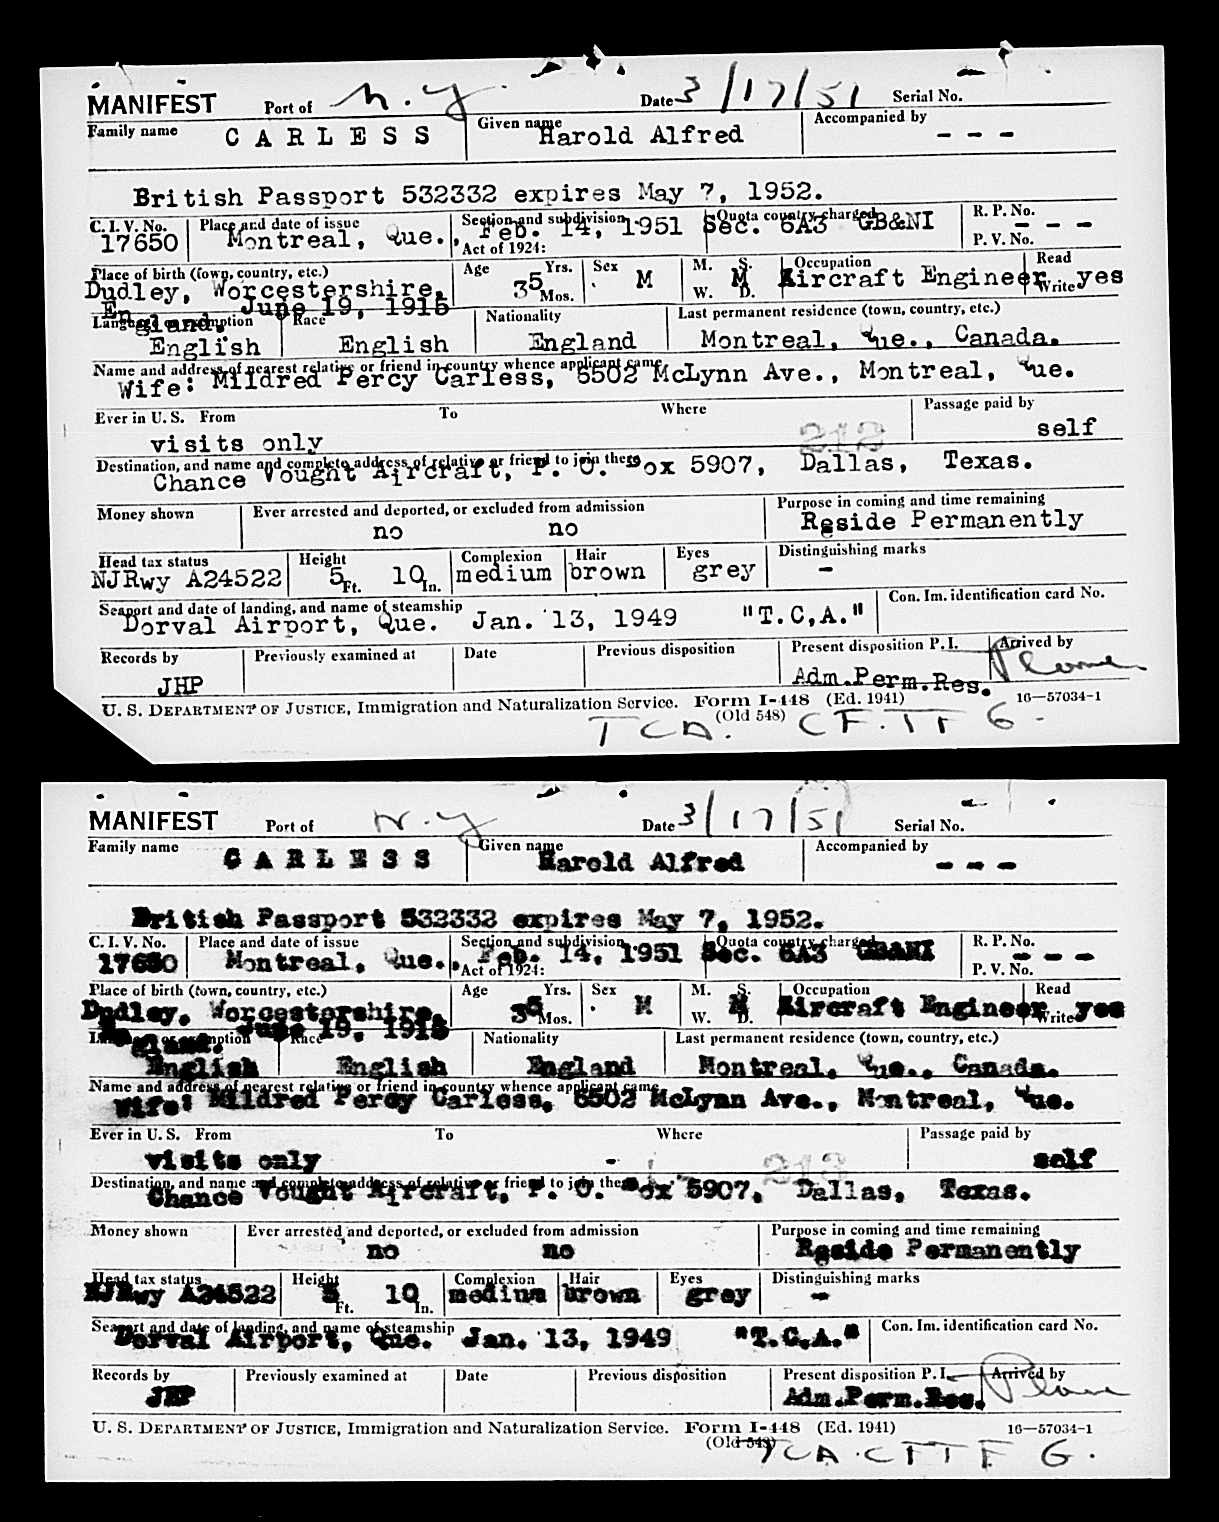 MANIFEST Port of N.Y. Date 3/17/51 Serial No.
Family name CARLESS Given name Harold Alfred Accompanied by - - -
British Passport 532332 expires May 7, 1952.
C. I. V. No. Place and date of issue Section and subdivision, Quota country charged R. P. No.
17650 Montreal, Que., Feb. 14, 1951 Sec. 6A3 GB&NI - - -
Act of 1924: P. V. No.
Place of birth (town, country, etc.) Age Yrs. Sex M. S. Occupation Read
Dudley, Worcestershire, 35 Mos. M M W. D. Aircraft Engineer Write yes
England. June 19, 1915
Language or exemption Race Nationality Last permanent residence (town, country, etc.)
English English England Montreal, Que., Canada.
Name and address of nearest relative or friend in country whence applicant came
Wife: Mildred Percy Carless, 6502 McLynn Ave., Montreal, Que.
Ever in U. S. From To Where Passage paid by
visits only 212 self
Destination, and name and complete address of relative or friend to join there
Chance Vought Aircraft, P. O. Box 5907, Dallas, Texas.
Money shown Ever arrested and deported, or excluded from admission Purpose in coming and time remaining
no no Reside Permanently
Head tax status Height Complexion Hair Eyes Distinguishing marks
NJRwy A24522 5 Ft. 10 In. medium brown grey -
Seaport and date of landing, and name of steamship Con. Im. identification card No.
Dorval Airport, Que. Jan. 13, 1949 "T.C.A."
Records by Previously examined at Date Previous disposition Present disposition P. I. Arrived by
JHP Adm.Perm.Res.
U. S. DEPARTMENT OF JUSTICE, Immigration and Naturalization Service. Form I-448 (Ed. 1941) 16—57034-1
(Old 548)
TCA. CF.TFG.
MANIFEST Port of N.Y. Date 3/17/51 Serial No.
Family name CARLESS Given name Harold Alfred Accompanied by - - -
British Passport 532332 expires May 7, 1952.
C. I. V. No. Place and date of issue Section and subdivision, Quota country charged R. P. No.
17650 Montreal, Que., Feb. 14, 1951 Sec. 6A3 GB&NI - - -
Act of 1924: P. V. No.
Place of birth (town, country, etc.) Age Yrs. Sex M. S. Occupation Read
Dudley, Worcestershire, 35 Mos. M M W. D. Aircraft Engineer Write yes
England. June 19, 1915
Language or exemption Race Nationality Last permanent residence (town, country, etc.)
English English England Montreal, Que., Canada.
Name and address of nearest relative or friend in country whence applicant came
Wife: Mildred Percy Carless, 6502 McLynn Ave., Montreal, Que.
Ever in U. S. From To Where Passage paid by
visits only 212 self
Destination, and name and complete address of relative or friend to join there
Chance Vought Aircraft, P. O. Box 5907, Dallas, Texas.
Money shown Ever arrested and deported, or excluded from admission Purpose in coming and time remaining
no no Reside Permanently
Head tax status Height Complexion Hair Eyes Distinguishing marks
NJRwy A24522 5 Ft. 10 In. medium brown grey -
Seaport and date of landing, and name of steamship Con. Im. identification card No.
Dorval Airport, Que. Jan. 13, 1949 "T.C.A."
Records by Previously examined at Date Previous disposition Present disposition P. I. Arrived by
JHP Adm.Perm.Res.
U. S. DEPARTMENT OF JUSTICE, Immigration and Naturalization Service. Form I-448 (Ed. 1941) 16—57034-1
(Old 548)
TCA. CFTFG.